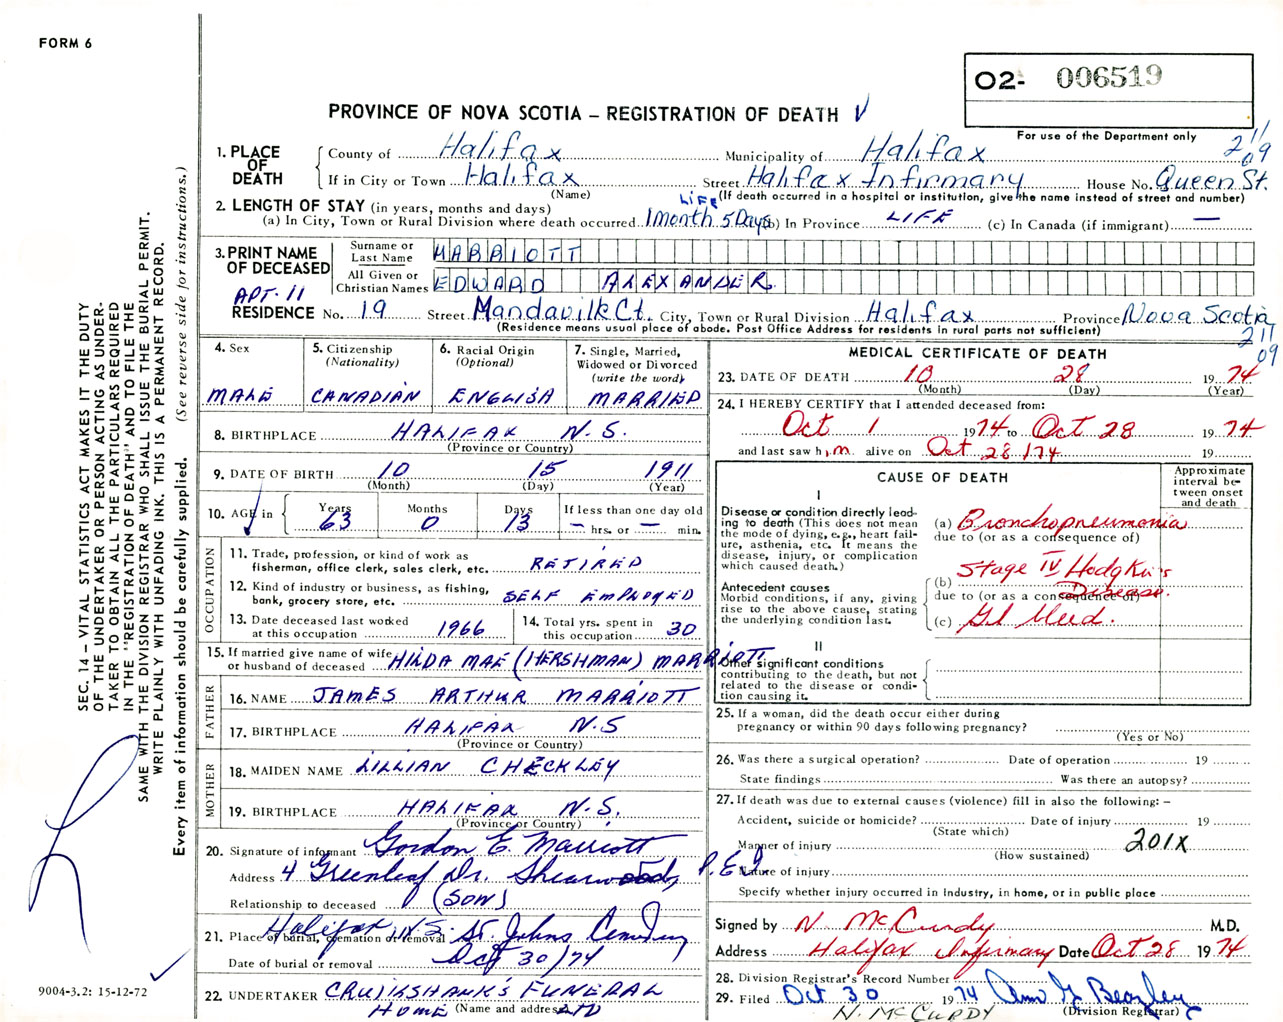 FORM 6
O2- 006519
For use of the Department only
PROVINCE OF NOVA SCOTIA – REGISTRATION OF DEATH
211
09
1. PLACE OF DEATH
County of Halifax Municipality of Halifax
If in City or Town Halifax Street Halifax Infirmary House No. Queen St.
(Name) (If death occurred in a hospital or institution, give the name instead of street and number)
2. LENGTH OF STAY (in years, months and days)
LIFE
(a) In City, Town or Rural Division where death occurred 1 month 5 Days (b) In Province LIFE (c) In Canada (if immigrant) —
3. PRINT NAME OF DECEASED
Surname or Last Name MARRIOTT
All Given or Christian Names EDWARD ALEXANDER
APT. 11
RESIDENCE No. 19 Street Mandaville Ct. City, Town or Rural Division Halifax Province Nova Scotia
(Residence means usual place of abode. Post Office Address for residents in rural parts not sufficient)
211
09
4. Sex
MALE
5. Citizenship
(Nationality)
CANADIAN
6. Racial Origin
(Optional)
ENGLISH
7. Single, Married,
Widowed or Divorced
(write the word)
MARRIED
8. BIRTHPLACE HALIFAX N.S.
(Province or Country)
9. DATE OF BIRTH 10 15 1911
(Month) (Day) (Year)
10. AGE in
Years Months Days If less than one day old
63 0 13 — hrs. or — min.
OCCUPATION
11. Trade, profession, or kind of work as
fisherman, office clerk, sales clerk, etc. RETIRED
12. Kind of industry or business, as fishing,
bank, grocery store, etc. SELF EMPLOYED
13. Date deceased last worked
at this occupation 1966
14. Total yrs. spent in
this occupation 30
15. If married give name of wife
or husband of deceased HILDA MAE (HERSHMAN) MARRIOTT
FATHER
16. NAME JAMES ARTHUR MARRIOTT
17. BIRTHPLACE HALIFAX N.S
(Province or Country)
MOTHER
18. MAIDEN NAME LILLIAN CHECKLEY
19. BIRTHPLACE HALIFAX N.S.
(Province or Country)
20. Signature of informant Gordon E. Marriott
Address 4 Greenleaf Dr. Sherwood, P.E.I.
Relationship to deceased (SON)
21. Place of burial, cremation or removal Halifax N.S. St. Johns Cemetery
Date of burial or removal Oct 30/74
22. UNDERTAKER CRUIKSHANK'S FUNERAL
HOME (Name and address) LTD
MEDICAL CERTIFICATE OF DEATH
23. DATE OF DEATH 10 28 1974
(Month) (Day) (Year)
24. I HEREBY CERTIFY that I attended deceased from:
Oct 1 1974 to Oct 28 1974
and last saw him alive on Oct 28/74 19
CAUSE OF DEATH
Approximate
interval be-
tween onset
and death
I
Disease or condition directly lead-
ing to death (This does not mean
the mode of dying, e.g., heart fail-
ure, asthenia, etc. It means the
disease, injury, or complication
which caused death.)
(a) Bronchopneumonia
due to (or as a consequence of)
Antecedent causes
Morbid conditions, if any, giving
rise to the above cause, stating
the underlying condition last.
(b) Stage IV Hodgkins Disease.
due to (or as a consequence of)
(c)
II
Other significant conditions
contributing to the death, but not
related to the disease or condi-
tion causing it.
25. If a woman, did the death occur either during
pregnancy or within 90 days following pregnancy?
(Yes or No)
26. Was there a surgical operation? Date of operation 19
State findings Was there an autopsy?
27. If death was due to external causes (violence) fill in also the following: –
Accident, suicide or homicide? Date of injury 19
(State which)
Manner of injury 201X
(How sustained)
Nature of injury
Specify whether injury occurred in Industry, in home, or in public place
Signed by N McCurdy M.D.
Address Halifax Infirmary Date Oct 28 1974
28. Division Registrar's Record Number
29. Filed Oct 30 1974
(Division Registrar)
N. McCURDY
SEC. 14 – VITAL STATISTICS ACT MAKES IT THE DUTY
OF THE UNDERTAKER OR PERSON ACTING AS UNDER-
TAKER TO OBTAIN ALL THE PARTICULARS REQUIRED
IN THE "REGISTRATION OF DEATH" AND TO FILE THE
SAME WITH THE DIVISION REGISTRAR WHO SHALL ISSUE THE BURIAL PERMIT.
WRITE PLAINLY WITH UNFADING INK. THIS IS A PERMANENT RECORD.
Every item of information should be carefully supplied. (See reverse side for instructions.)
9004-3.2: 15-12-72